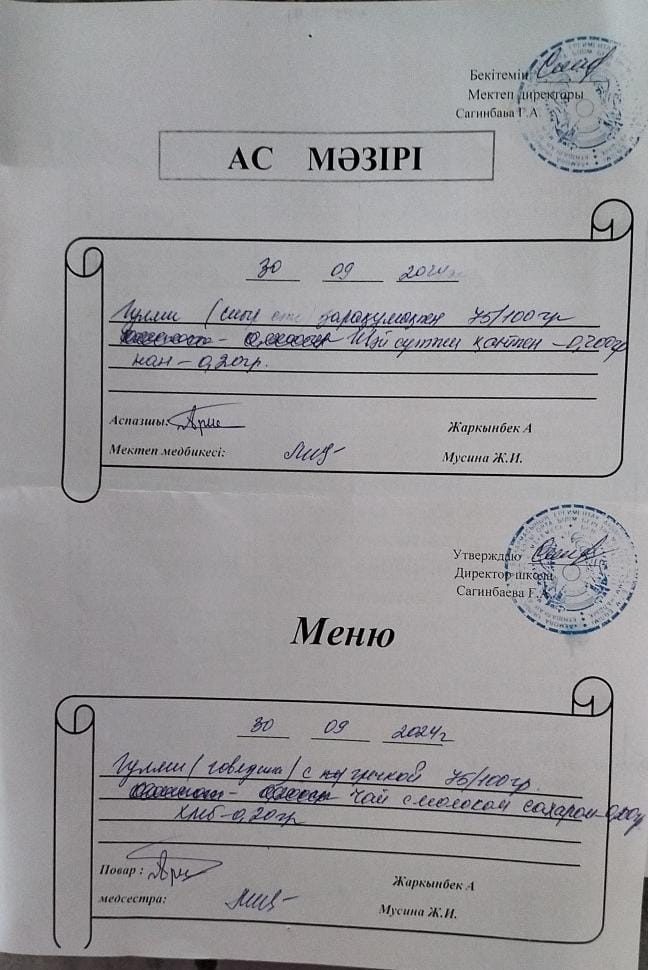 Бекітемін
Мектеп директоры
Сагинбава Г.А
АС МӘЗІРІ
30 09 2024ж
Гуляш (сиыр еті) қарақұмықпен 75/100гр
Шәй сүтпен қантпен - 0,200гр
нан - 0,20гр.
Аспазшы:
Жаркынбек А
Мектеп медбикесі:
Мусина Ж.И.
Утверждаю
Директор школы
Сагинбаева Г.А
Меню
30 09 2024г
Гуляш (говядина) с гречкой 75/100гр.
Чай с молоком сахаром 0,200гр
Хлеб - 0,20гр
Повар :
Жаркынбек А
медсестра:
Мусина Ж.И.